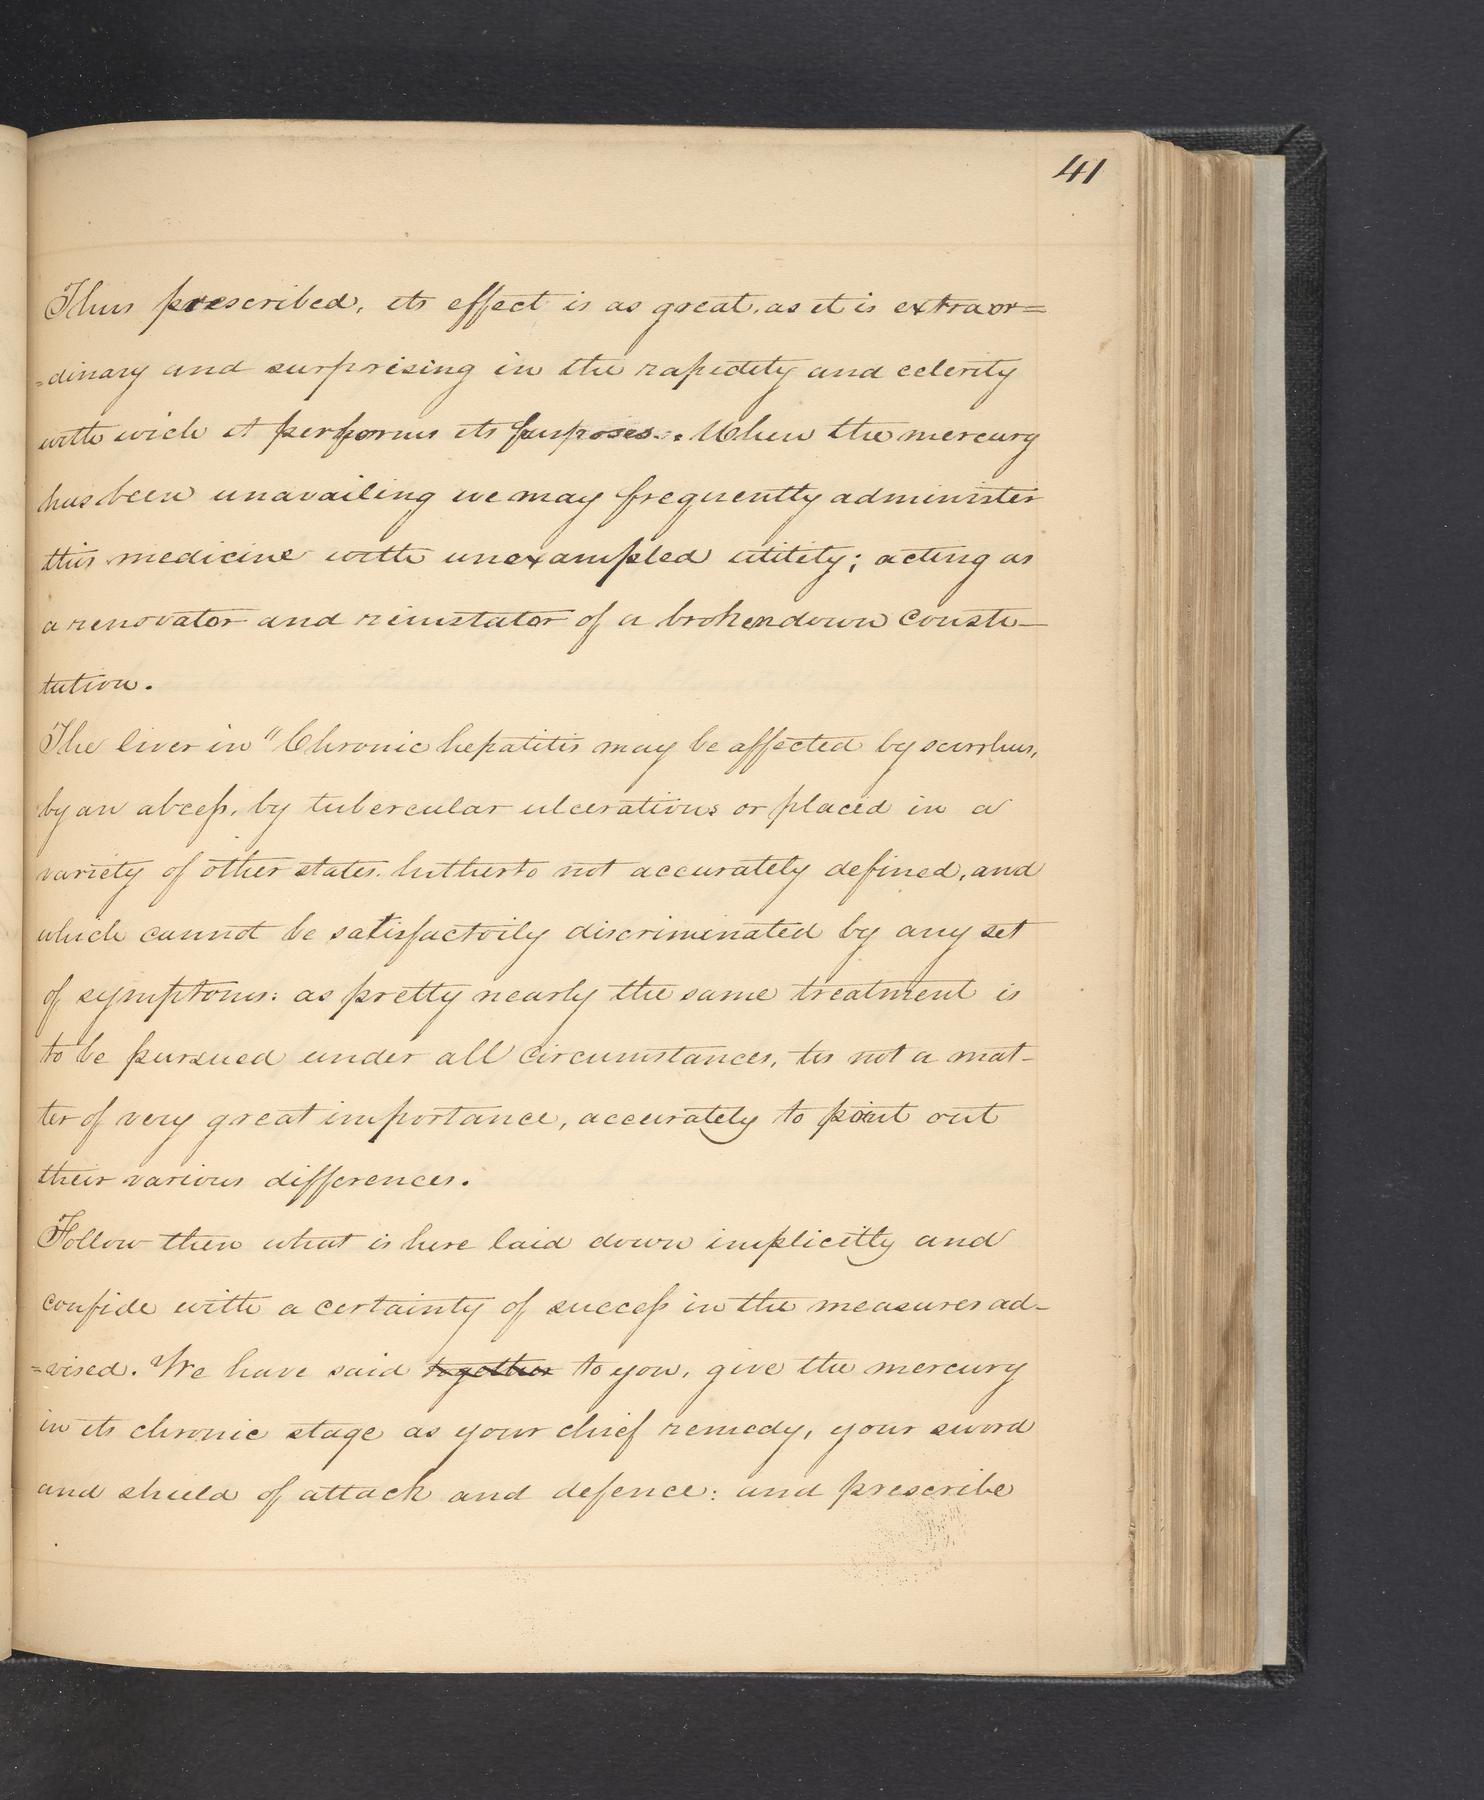 41
Thus prescribed, its effect is as great, as it is extraor=
=dinary and surprising in the rapidity and celerity
with wich it performs its purposes. When the mercury
has been unavailing we may frequently administer
this medicine with unexampled utility; acting as
a renovator and reinstator of a broken down consti-
tution.
The liver in "Chronic hepatitis may be affected by scirrhus,
by an abcess, by tubercular ulcerations or placed in a
variety of other states hitherto not accurately defined, and
which cannot be satisfactoily discriminated by any set
of symptoms: as pretty nearly the same treatment is
to be pursued under all circumstances, tis not a mat-
ter of very great importance, accurately to point out
their various differences.
Follow then what is here laid down implicitly and
confide with a certainty of success in the measures ad-
=vised. We have said together to you, give the mercury
in its chronic stage as your chief remedy, your sword
and shield of attack and defence: and prescribe